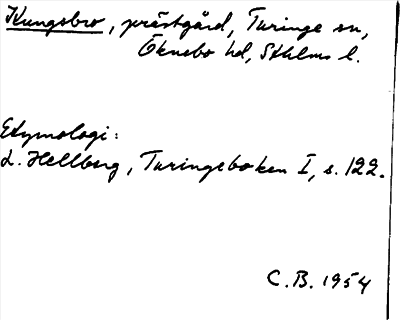 Kungsbro, prästgård, Turinge sn,
Öknebo hd, Sthlms l.
Etymologi:
L. Hellberg, Turingeboken I, s. 122.
C.B. 1954